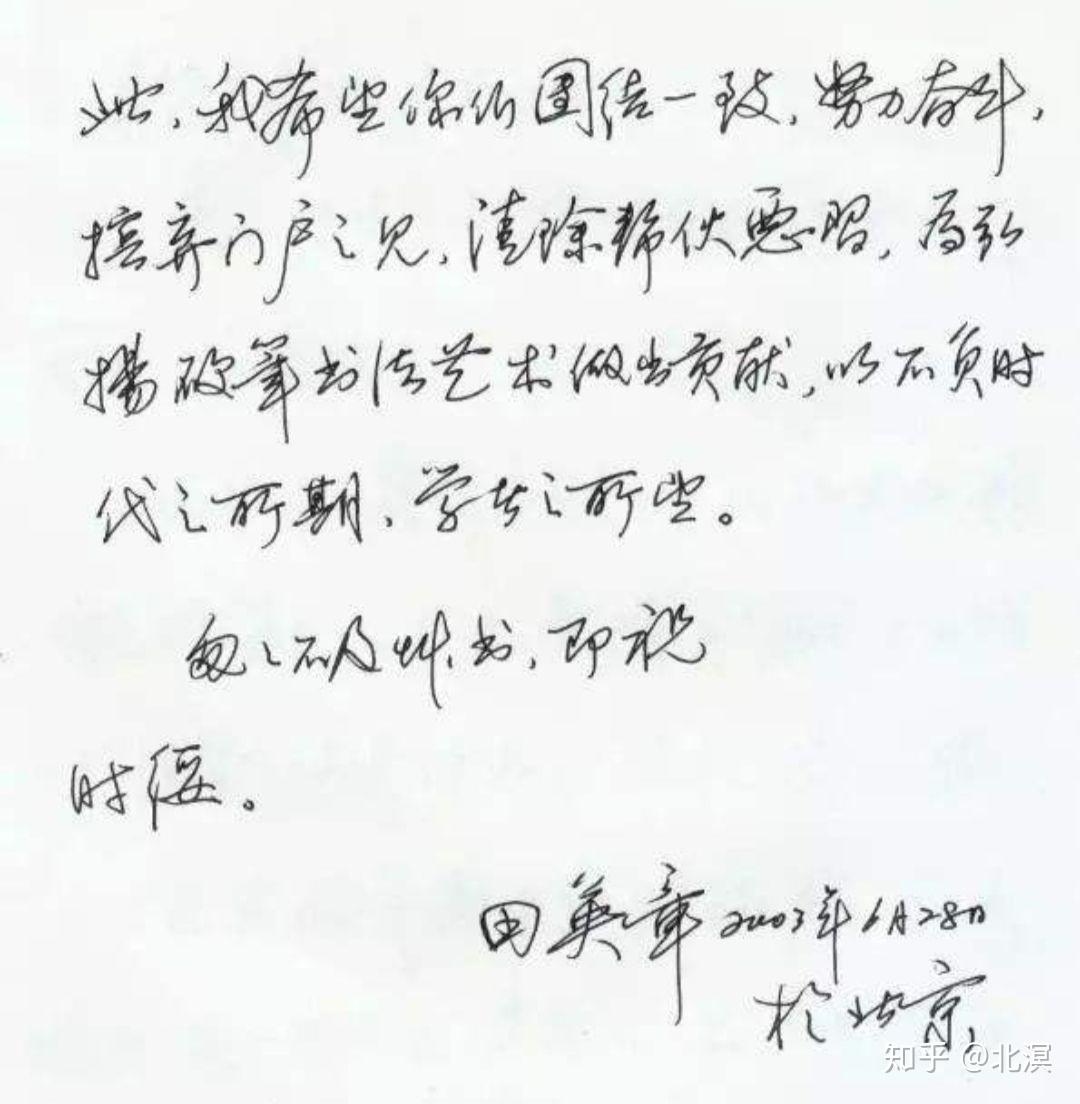 此，我希望你们團结一致，努力奋斗，
摈弃门户之见，清除帮伙恶習，为弘
揚硬筆书法艺术做出贡献，以不负时
代之所期、学者之所望。
匆匆不及艸书，即祝
时绥。
田英章2003年6月28日
於北京
知乎 @北溟